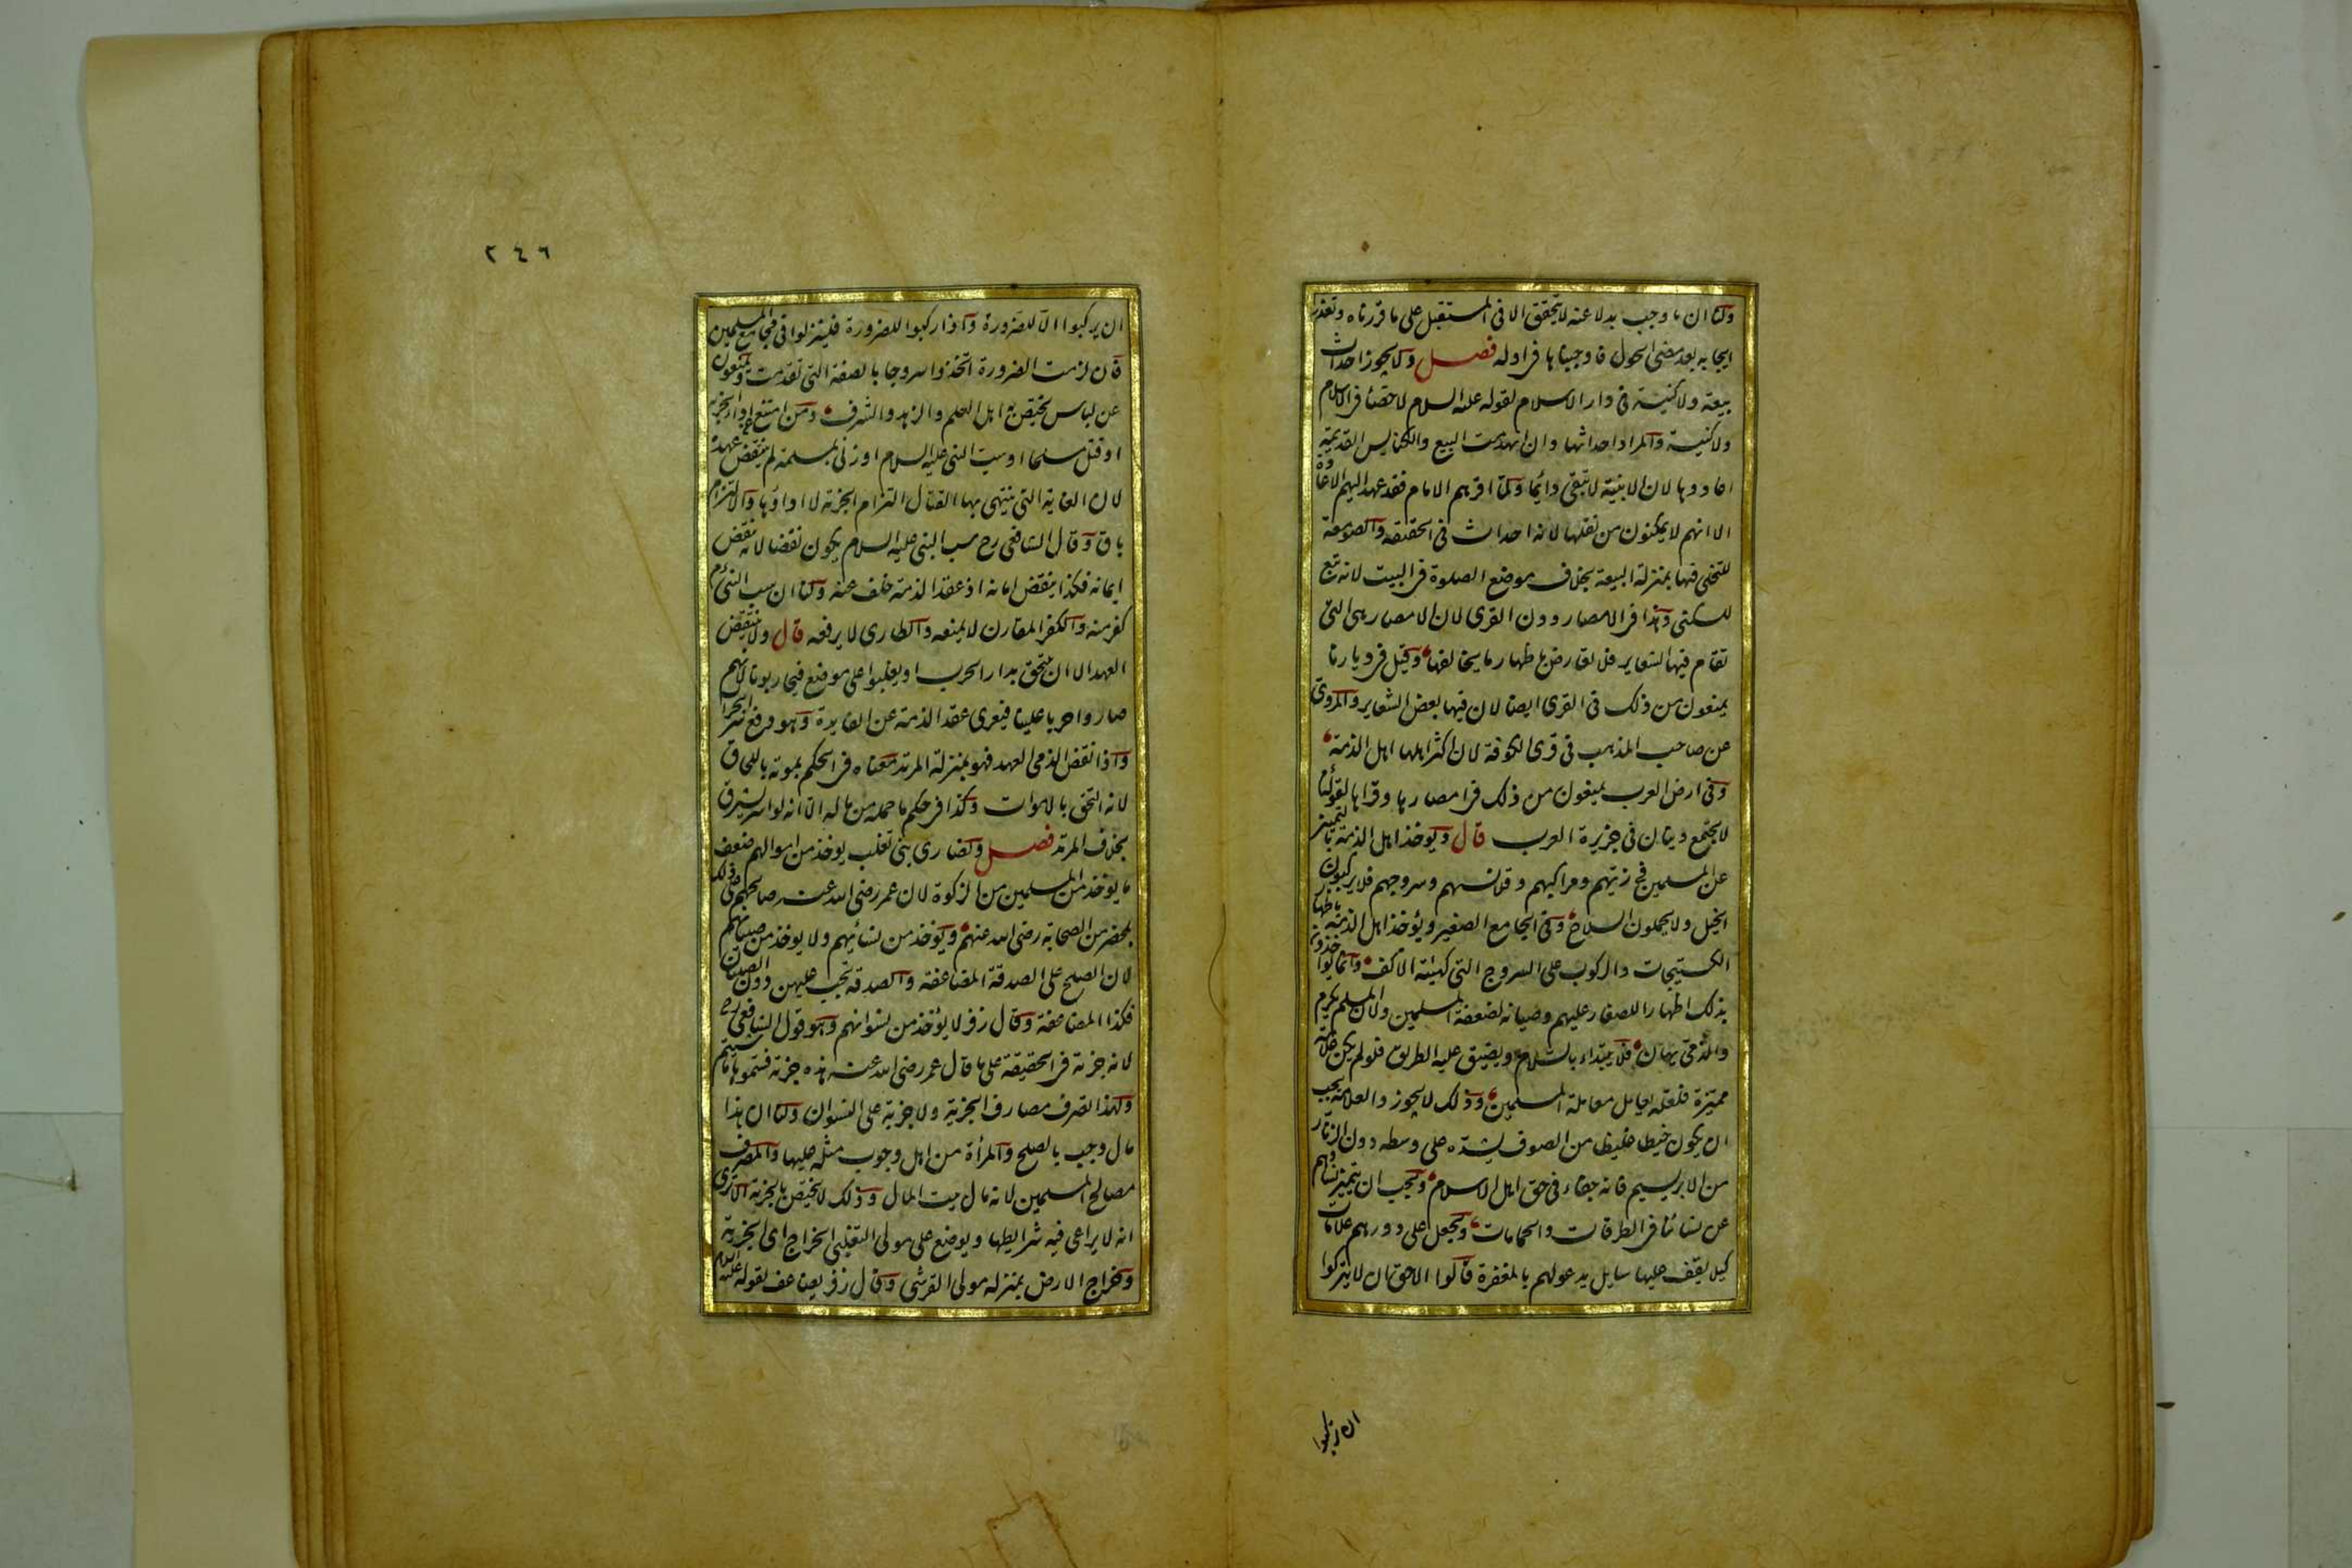 ولنا ان ما وجب بدلا عنه لا يتحقق الا فى المستقبل على ما قررناه وتعذر
ايجابه بعد مضى الحول فاوجبناها فى اوله فصل ولا يجوز احداث
بيعة ولا كنيسة فى دار الاسلام لقوله عليه السلام لا خصاء فى الاسلام
ولا كنيسة والمراد احداثها وان انهدمت البيع والكنايس القديمة
اعادوها لان الابنية لا تبقى دائما ولما اقرهم الامام فقد عهد اليهم الاعادة
الا انهم لا يمكنون من نقلها لانه احداث فى الحقيقة والصومعة
للتخلى فيها بمنزلة البيعة بخلاف موضع الصلوة فى البيت لانه تبع
للسكنى وهذا فى الامصار دون القرى لان الامصار هى التى
تقام فيها الشعاير فلا تعارض باظهار ما يخالفها وقيل فى ديارنا
يمنعون من ذلك فى القرى ايضا لان فيها بعض الشعاير والمروى
عن صاحب المذهب فى قرى الكوفة لان اكثر اهلها اهل الذمة
وفى ارض العرب يمنعون من ذلك فى امصارها وقراها لقوله
لا يجتمع دينان فى جزيرة العرب قال ويوخذ اهل الذمة بالتميز
عن المسلمين فى زيهم ومراكبهم وقلانسهم وسروجهم فلا يركبون
الخيل ولا يحملون السلاح وفى الجامع الصغير ويؤخذ اهل الذمة باظهار
الكستيجات والركوب على السروج التى كهيئة الاكف وانما يواخذون
بذلك اظهارا للصغار عليهم وصيانة لضعفة المسلمين ولان المسلم يكرم
والذمى يهان فلا يبتداء بالسلام ويضيق عليه الطريق فلو لم يكن علامة
مميزة فلعله يعامل معاملة المسلمين وذلك لا يجوز والعلامة يجب
ان يكون خيطا غليظا من الصوف يشده على وسطه دون الزنار
من الابريسم فانه جفاء فى حق اهل الاسلام ويجب ان يتميز نساؤهم
عن نسائنا فى الطرقات والحمامات ويجعل على دورهم علامات
كيلا يقف عليها سايل يدعو لهم بالمغفرة قالوا الاحق ان لا يتركوا
ان يركبوا
٢٤٦
ان يركبوا الا للضرورة واذا ركبوا للضرورة فلينزلوا فى مجامع المسلمين
فان لزمت الضرورة اتخذوا سروجا بالصفة التى تقدمت ويمنعون
عن لباس يختص به اهل العلم والزهد والشرف ومن امتنع عن اداء الجزية
او قتل مسلما او سب النبى عليه السلام او زنى بمسلمة لم ينتقض عهده
لان الغاية التى ينتهى بها القتال التزام الجزية لا اداؤها والالتزام
باق وقال الشافعى رح سب النبى عليه السلام يكون نقضا لانه نقض
ايمانه فكذا ينقض امانه اذ عقد الذمة خلف عنه ولنا ان سب النبى م
كفر منه والكفر المقارن لا يمنعه والطارى لا يرفعه قال ولا ينتقض
العهد الا ان يلتحق بدار الحرب او يغلبوا على موضع فيحاربوننا لانهم
صاروا حربا علينا فيعرى عقد الذمة عن الفايدة وهو دفع شر الحراب
واذا نقض الذمى العهد فهو بمنزلة المرتد معناه فى الحكم بموته باللحاق
لانه التحق بالاموات وكذا فى حكم ما حمله من ماله الا انه لو اسر يسترق
بخلاف المرتد فصل ونصارى بنى تغلب يوخذ من اموالهم ضعف
ما يوخذ من المسلمين من الزكوة لان عمر رضى الله عنه صالحهم على ذلك
بمحضر من الصحابة رضى الله عنهم ويوخذ من نسائهم ولا يوخذ من صبيانهم
لان الصلح على الصدقة المضاعفة والصدقة تجب عليهن دون الصبيان
فكذا المضاعفة وقال زفر لا يؤخذ من نسوانهم وهو قول الشافعى رح
لانه جزية فى الحقيقة على ما قال عمر رضى الله عنه هذه جزية فسموها ما شيتم
ولهذا تصرف مصارف الجزية ولا جزية على النسوان ولنا ان هذا
مال وجب بالصلح والمرأة من اهل وجوب مثله عليها والمصرف
مصالح المسلمين لانه مال بيت المال وذلك لا يختص بالجزية الا ترى
انه لا يراعى فيه شرايطها ويوضع على مولى التغلبى الخراج اى الجزية
وخراج الارض بمنزلة مولى القرشى وقال زفر يضاعف لقوله عليه السلام